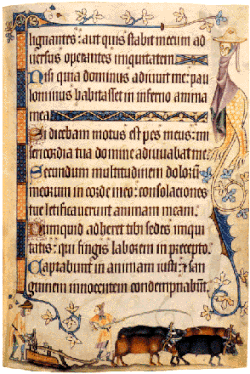 lignantes: aut quis stabit mecum ad
versus operantes iniquitatem
Nisi quia dominus adiuvit me: pau
lominus habitasset in inferno anima
mea
Si dicebam motus est pes meus: mi
sericordia tua domine adiuvabat me
Secundum multitudinem dolorum
meorum in corde meo: consolaciones
tue letificaverunt animam meam.
Numquid adheret tibi sedes iniqui
tatis: qui fingis laborem in precepto.
Captabunt in animam iusti: et san
guinem innocentem condempnabunt.